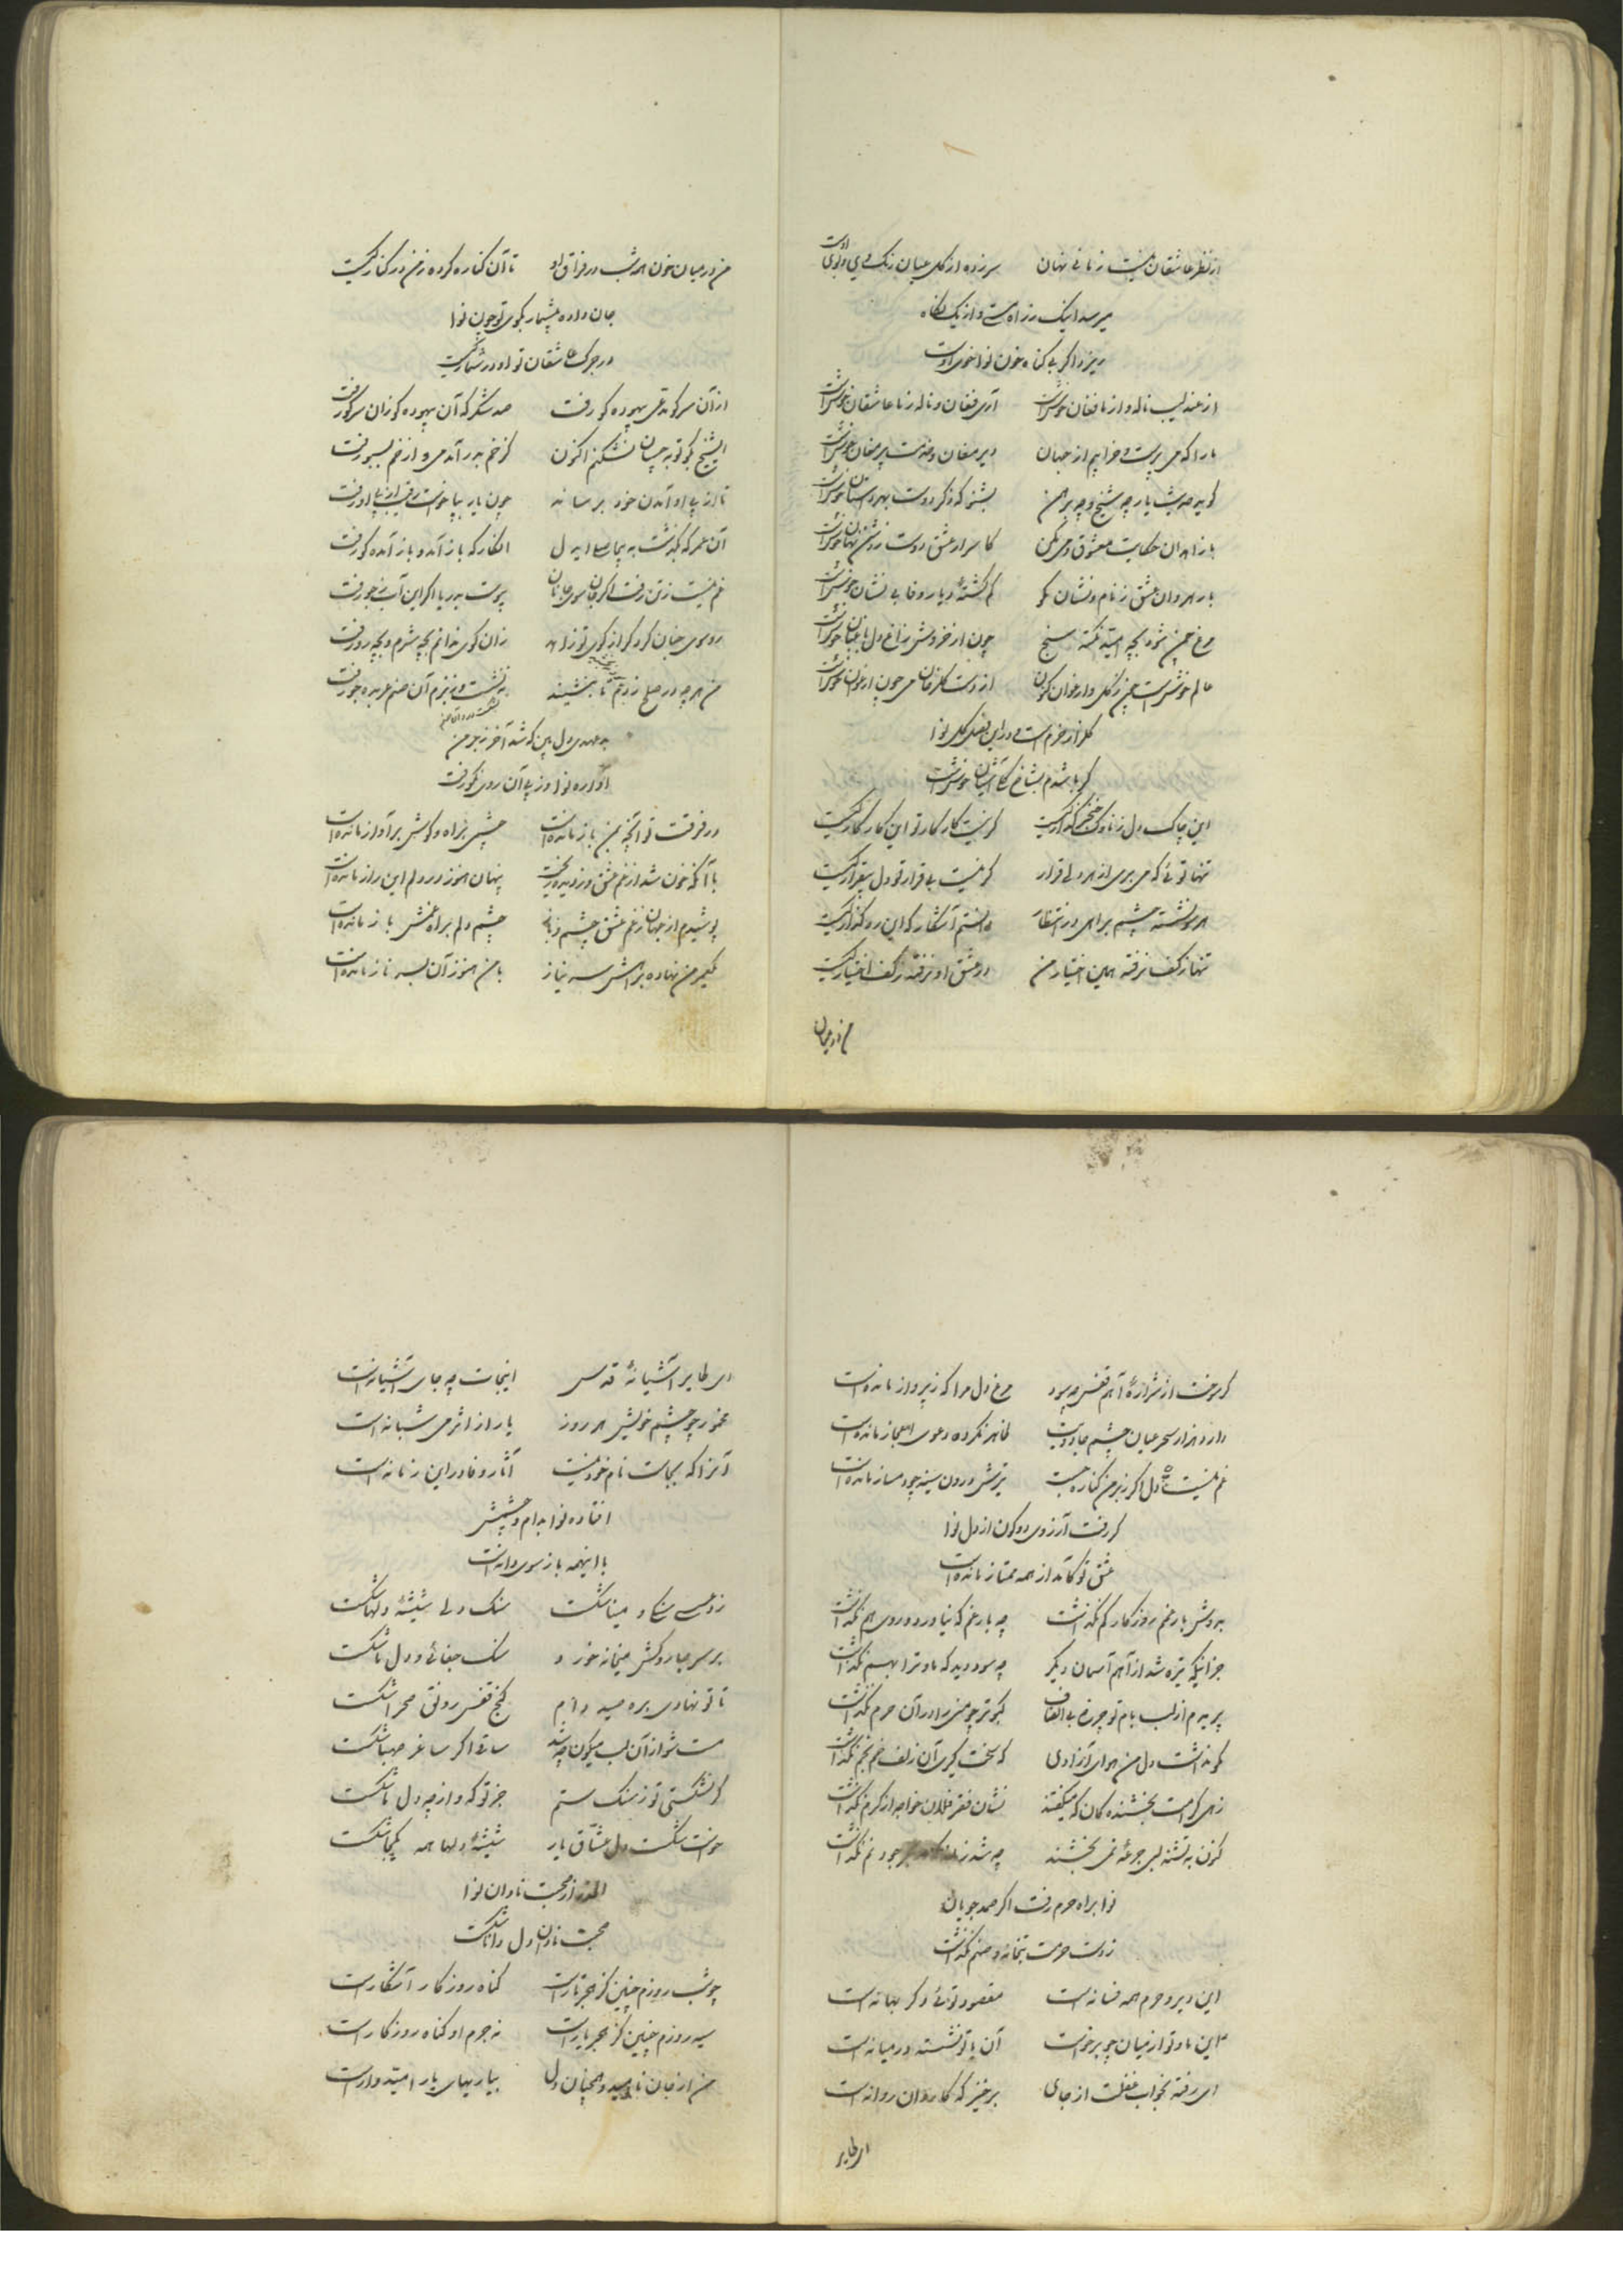 از نظر عاشقان نیست زمانی نهان سر زده از گل عیان رنگ وی و بوی اوست
میرسد اینک ز راه مست و از یک نگاه
ریزد اگر بی گناه خون نوا خوی اوست
از عندلیب ناله و از ما فغان خوش است آری فغان و ناله ز ما عاشقان خوش است
ما را که می پرست و خرابیم از جهان دیر مغان و خدمت پیر مغان خوش است
گوید حدیث یار چه شیخ و چه برهمن بشنو که ذکر دوست بهر داستان خوش است
با زاهدان حکایت معشوق و می مکن کاسرار عشق دوست ز دشمن نهان خوش است
با رهروان عشق ز نام و نشان مگو گم گشتهٔ دیار وفا بی نشان خوش است
مرغ چمن شود بچه امید نکته سنج چون از خروش زاغ دل باغبان خوش است
عالم خوش است چمن ز گل و ارغوان کنون از دست گلرخان می چون ارغوان خوش است
گلزار خرم است و در این فصل گل نوا
گر باشدم بشاخ گلی آشیان خوش است
این چاک دل ز ناوک خنجر گذار کیست گر نیست کار کار تو این کار کار کیست
تنها توئی که می بری از هر دلی قرار گر نیست بی قرار تو دل بیقرار کیست
هر سو نشسته چشم براهی در انتظار دانستم آشکار که این رهگذار کیست
تنها ز کف نرفته همین اختیار من در عشق او نرفته ز کف اختیار کیست
من در میان
من در میان خون همه شب در فراق او تا آن کناره کرده ز من در کنار کیست
جان داده بیشمار بکوی تو چون نوا
در جرگ عاشقان تو او در شمار کیست
از آن سر کو مدعی بیهوده گو رفت صد شکر که آن بیهوده گو زان سر کو رفت
ای شیخ مگو توبه چسان نشکنم اکنون کز خم بدر آمد می و از خم بسبو رفت
تا از پی او آمدن خود برساند چون یار بپا خواست رقیب از پی او رفت
آن عمر که بگذشت به پیمان ای دل انگار که باز آمد و باز آمده گو رفت
غم نیست ز تن رفت اگر جان سوی جانان پیوست بدریا اگر این آب ز جو رفت
رو سوی جنان کرد گر از کوی تو زاهد زان کوی ندانم بچه شرم و بچه رو رفت
من هر چه در صلح زدم تا بنشیند ننشست و ز بزم آن صنم عربده جو رفت
بدعهدی دل بین که شد آخر ز بر من
آواره نوا وز پی آن روی نکو رفت
در فرقت تو آنچه بمن باز مانده است چشمی براه و گوش بر آواز مانده است
با آنکه خون شد از غم عشق و ز دیده ریخت پنهان هنوز در دلم این راز مانده است
پوشیدم از جهان ز غم عشق چشم و باز چشم دلم براه غمش باز مانده است
گیرم من نهاده براهش سر نیاز با من هنوز آن بسر ناز مانده است
گر سوخت از شرارهٔ آهم قفس چه سود مرغ دل مرا که ز پرواز مانده است
دارد هزار سحر عیان چشم جادویت ظاهر نکرده دعوی اعجاز مانده است
غم نیست دل اگر ز بر من کناره جست تیرش درون سینه چو دمساز مانده است
گر رفت آرزوی دو کون از دل نوا
عشق تو کامد از همه ممتاز مانده است
بدوش بار غم روزگار کم نگذاشت چه بار غم که نیاورد و روی هم نگذاشت
جز اینکه تیره شد از آهم آسمان دیگر چه سود دید که ما و ترا بهم نگذاشت
پریدم از لب بام تو چون ز بی الطاف کبوتر چو منی را در آن حرم نگذاشت
نگو نداشت دل من هوای آزادی که سخت گیری آن زلف خم بخم نگذاشت
زهی کرامت بخشنده کان که میگفتند نشان فقر فلان خواجه از کرم نگذاشت
کنون به تشنه لبی جرعهٔ نمی بخشند چه شد نم نگذاشت
نوا براه حرم رفت اگر صمد جویان
ز دست حرمت بتخانه و صنم نگذاشت
این دیر و حرم همه فسانه است مقصود توئی دگر بهانه است
این ما و تو از میان چو برخاست آن با تو نشسته در میانه است
ای رفته بخواب غفلت از جای برخیز که کاروان روانه است
ای طایر
ای طایر آشیانهٔ قدس اینجات چه جای آشیانه است
مخمور چو چشم خویش هر روز یار از اثر می شبانه است
آنرا که بجاست نام خود نیست آثار وفا در این زمانه است
افتاده نوا بدام و چشمش
با اینهمه باز سوی دانه است
زد محتسب سنگ و مینا شکست سنگ دلی شیشهٔ دلها شکست
بر سر ما دردکش میخانه خورد سنگ جفائی و دل ما شکست
تا تو نهادی بره صید دام کنج قفس رونق صحرا شکست
مست شو از آن لب میگون چه شد ساقی اگر ساغر صهبا شکست
گر نشکستی تو ز سنگ ستم جز تو که و از چه دل ما شکست
خواست شکست دل عشاق یار شیشهٔ دلها همه یکجا شکست
الحذر از محبت نادان نوا
محبت نادان دل دانا شکست
چو شب روزم چنین کز هجر تار است گناه روزگار آشکار است
سیه روزم چنین کز هجر یار است نه جرم او گناه روزگار است
من از جان ناامید و همچنان دل بیاریهای یار امیدوار است